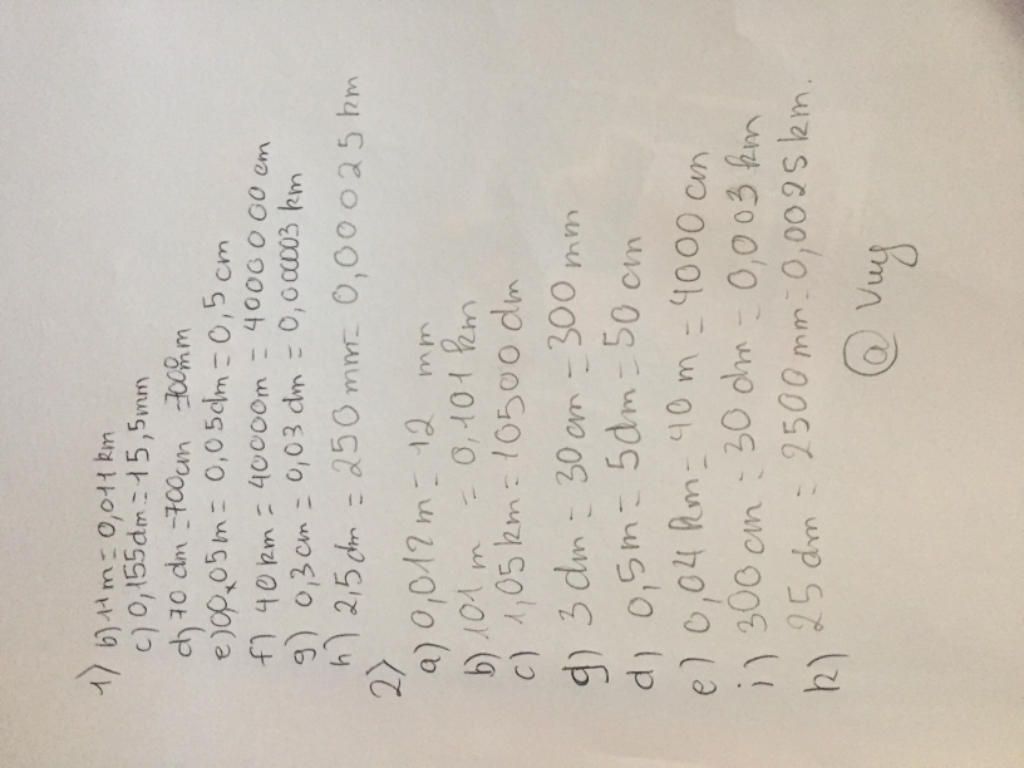 1) b) 11 m = 0,011 km
c) 0,155dm = 15,5mm
d) 70 dm = 700cm = 7000mm
e) 0,05m = 0,05dm = 0,5 cm
f) 40 km = 40000m = 4000 000 cm
g) 0,3 cm = 0,03 dm = 0,00003 km
h) 2,5 dm = 250 mm = 0,00025 km
2)
a) 0,012 m = 12 mm
b) 101 m = 0,101 km
c) 1,05 km = 10500 dm
g) 3 dm = 30 cm = 300 mm
d) 0,5 m = 5 dm = 50 cm
e) 0,04 km = 40 m = 4000 cm
i) 300 cm = 30 dm = 0,003 km
k) 25 dm = 2500 mm = 0,0025 km.
@ Vuy